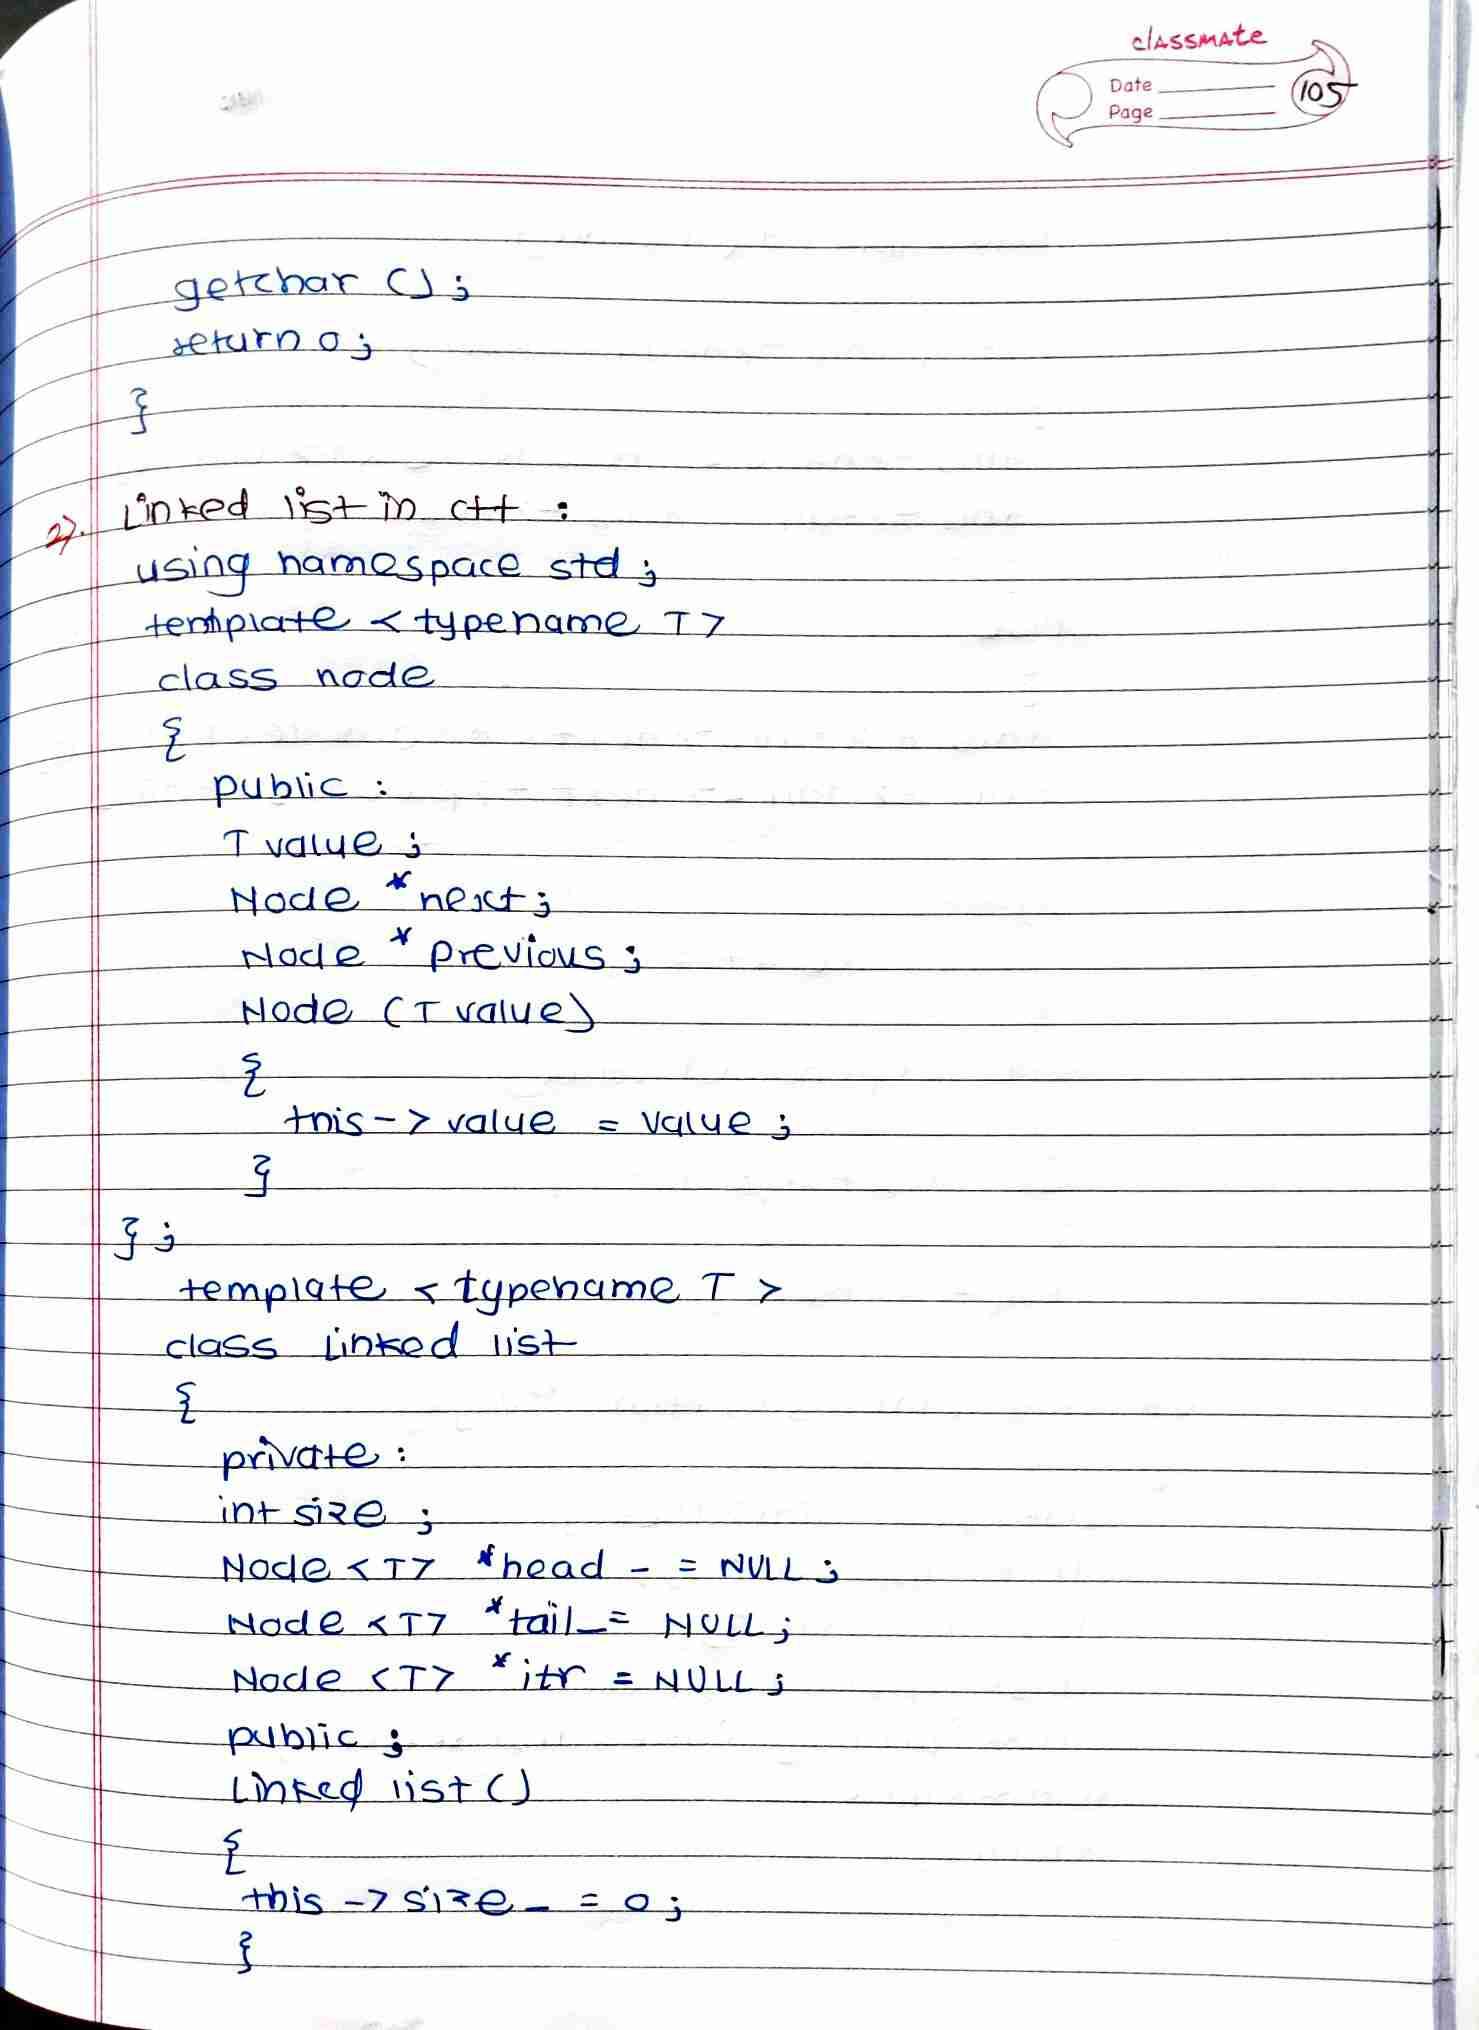 classmate
Date
Page
105
getchar ();
return 0;
}
2). Linked list in c++ :
using namespace std ;
template < typename T >
class node
{
public :
T value ;
Node *next ;
Node * previous ;
Node (T value)
{
this -> value = value ;
}
} ;
template < typename T >
class Linked list
{
private :
int size ;
Node <T> *head _ = NULL ;
Node <T> *tail_ = NULL ;
Node <T> *itr = NULL ;
public ;
Linked list ()
{
this -> size _ = 0 ;
}